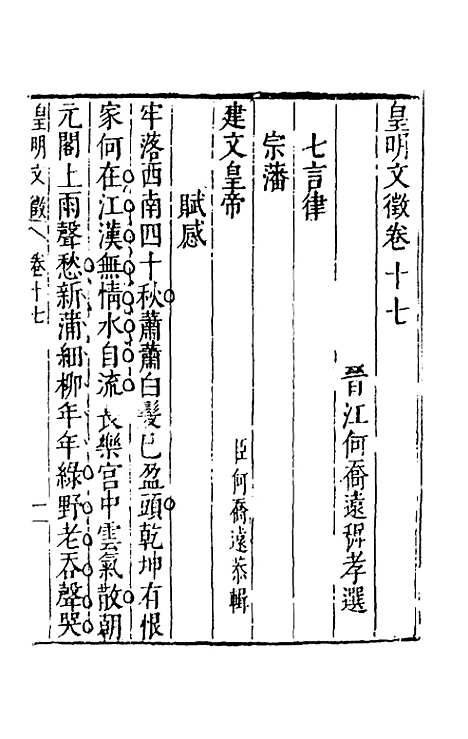 皇明文徵卷十七
晉江何喬遠穉孝選
七言律
宗藩
建文皇帝
臣何喬遠恭輯
賦感
牢落西南四十秋蕭蕭白髮已盈頭乾坤有恨
家何在江漢無情水自流長樂宮中雲氣散朝
元閣上雨聲愁新蒲細柳年年綠野老吞聲哭
皇明文徵
卷十七
一